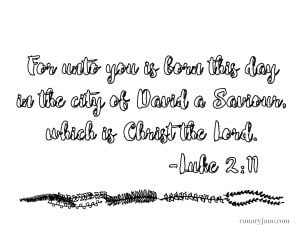 For unto you is born this day
in the city of David a Saviour,
which is Christ the Lord.
-Luke 2:11
canaryjane.com